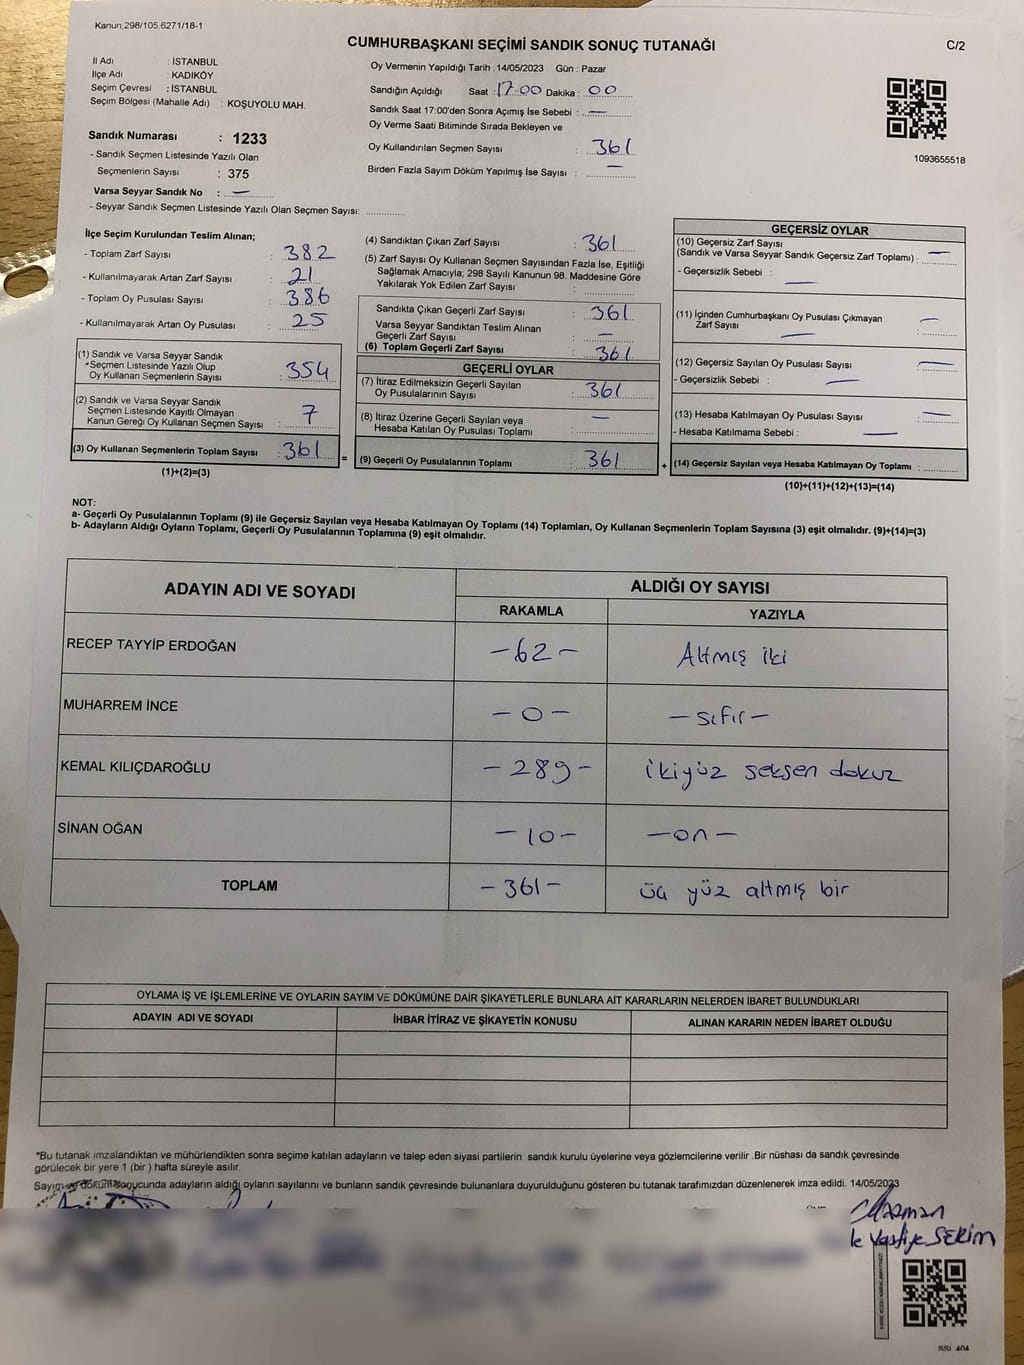 Kanun 298/105.6271/18-1
CUMHURBAŞKANI SEÇİMİ SANDIK SONUÇ TUTANAĞI
C/2
İl Adı : İSTANBUL
İlçe Adı : KADIKÖY
Seçim Çevresi : İSTANBUL
Seçim Bölgesi (Mahalle Adı) : KOŞUYOLU MAH.
Oy Vermenin Yapıldığı Tarih : 14/05/2023 Gün : Pazar
Sandığın Açıldığı Saat : 17.00 Dakika : 00
Sandık Saat 17:00'den Sonra Açımış İse Sebebi : —
Oy Verme Saati Bitiminde Sırada Bekleyen ve
Oy Kullandırılan Seçmen Sayısı : 361
Birden Fazla Sayım Döküm Yapılmış İse Sayısı : —
1093655518
Sandık Numarası : 1233
- Sandık Seçmen Listesinde Yazılı Olan
Seçmenlerin Sayısı : 375
Varsa Seyyar Sandık No : —
- Seyyar Sandık Seçmen Listesinde Yazılı Olan Seçmen Sayısı:
İlçe Seçim Kurulundan Teslim Alınan;
- Toplam Zarf Sayısı : 382
- Kullanılmayarak Artan Zarf Sayısı : 21
- Toplam Oy Pusulası Sayısı : 386
- Kullanılmayarak Artan Oy Pusulası : 25
(1) Sandık ve Varsa Seyyar Sandık
*Seçmen Listesinde Yazılı Olup
Oy Kullanan Seçmenlerin Sayısı : 354
(2) Sandık ve Varsa Seyyar Sandık
Seçmen Listesinde Kayıtlı Olmayan
Kanun Gereği Oy Kullanan Seçmen Sayısı : 7
(3) Oy Kullanan Seçmenlerin Toplam Sayısı : 361
(1)+(2)=(3)
=
(4) Sandıktan Çıkan Zarf Sayısı : 361
(5) Zarf Sayısı Oy Kullanan Seçmen Sayısından Fazla İse, Eşitliği
Sağlamak Amacıyla; 298 Sayılı Kanunun 98. Maddesine Göre
Yakılarak Yok Edilen Zarf Sayısı :
Sandıkta Çıkan Geçerli Zarf Sayısı : 361
Varsa Seyyar Sandıktan Teslim Alınan
Geçerli Zarf Sayısı : —
(6) Toplam Geçerli Zarf Sayısı : 361
GEÇERLİ OYLAR
(7) İtiraz Edilmeksizin Geçerli Sayılan
Oy Pusulalarının Sayısı : 361
(8) İtiraz Üzerine Geçerli Sayılan veya
Hesaba Katılan Oy Pusulası Toplamı : —
(9) Geçerli Oy Pusulalarının Toplamı : 361
+
GEÇERSİZ OYLAR
(10) Geçersiz Zarf Sayısı
(Sandık ve Varsa Seyyar Sandık Geçersiz Zarf Toplamı) : —
- Geçersizlik Sebebi : —
(11) İçinden Cumhurbaşkanı Oy Pusulası Çıkmayan
Zarf Sayısı : —
(12) Geçersiz Sayılan Oy Pusulası Sayısı : —
- Geçersizlik Sebebi : —
(13) Hesaba Katılmayan Oy Pusulası Sayısı : —
- Hesaba Katılmama Sebebi : —
(14) Geçersiz Sayılan veya Hesaba Katılmayan Oy Toplamı :
(10)+(11)+(12)+(13)=(14)
NOT:
a- Geçerli Oy Pusulalarının Toplamı (9) ile Geçersiz Sayılan veya Hesaba Katılmayan Oy Toplamı (14) Toplamları, Oy Kullanan Seçmenlerin Toplam Sayısına (3) eşit olmalıdır. (9)+(14)=(3)
b- Adayların Aldığı Oyların Toplamı, Geçerli Oy Pusulalarının Toplamına (9) eşit olmalıdır.
ADAYIN ADI VE SOYADI
ALDIĞI OY SAYISI
RAKAMLA YAZIYLA
RECEP TAYYİP ERDOĞAN -62- Altmış iki
MUHARREM İNCE -0- -sıfır-
KEMAL KILIÇDAROĞLU -289- ikiyüz seksen dokuz
SİNAN OĞAN -10- -on-
TOPLAM -361- üç yüz altmış bir
OYLAMA İŞ VE İŞLEMLERİNE VE OYLARIN SAYIM VE DÖKÜMÜNE DAİR ŞİKAYETLERLE BUNLARA AİT KARARLARIN NELERDEN İBARET BULUNDUKLARI
ADAYIN ADI VE SOYADI İHBAR İTİRAZ VE ŞİKAYETİN KONUSU ALINAN KARARIN NEDEN İBARET OLDUĞU
*Bu tutanak imzalandıktan ve mühürlendikten sonra seçime katılan adayların ve talep eden siyasi partilerin sandık kurulu üyelerine veya gözlemcilerine verilir. Bir nüshası da sandık çevresinde
görülecek bir yere 1 (bir ) hafta süreyle asılır.
Sayım ve döküm sonucunda adayların aldığı oyların sayılarını ve bunların sandık çevresinde bulunanlara duyurulduğunu gösteren bu tutanak tarafımızdan düzenlenerek imza edildi. 14/05/2023